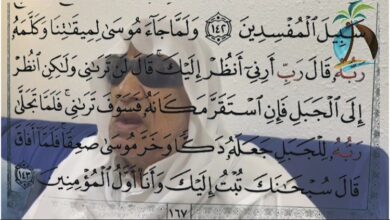 سَبِيلَ ٱلْمُفْسِدِينَ ١٤٢ وَلَمَّا جَآءَ مُوسَىٰ لِمِيقَٰتِنَا وَكَلَّمَهُۥ
رَبُّهُۥ قَالَ رَبِّ أَرِنِىٓ أَنظُرْ إِلَيْكَ ۚ قَالَ لَن تَرَىٰنِى وَلَٰكِنِ ٱنظُرْ
إِلَى ٱلْجَبَلِ فَإِنِ ٱسْتَقَرَّ مَكَانَهُۥ فَسَوْفَ تَرَىٰنِى ۚ فَلَمَّا تَجَلَّىٰ
رَبُّهُۥ لِلْجَبَلِ جَعَلَهُۥ دَكًّا وَخَرَّ مُوسَىٰ صَعِقًا ۚ فَلَمَّآ أَفَاقَ
قَالَ سُبْحَٰنَكَ تُبْتُ إِلَيْكَ وَأَنَا۠ أَوَّلُ ٱلْمُؤْمِنِينَ ١٤٣
١٦٧